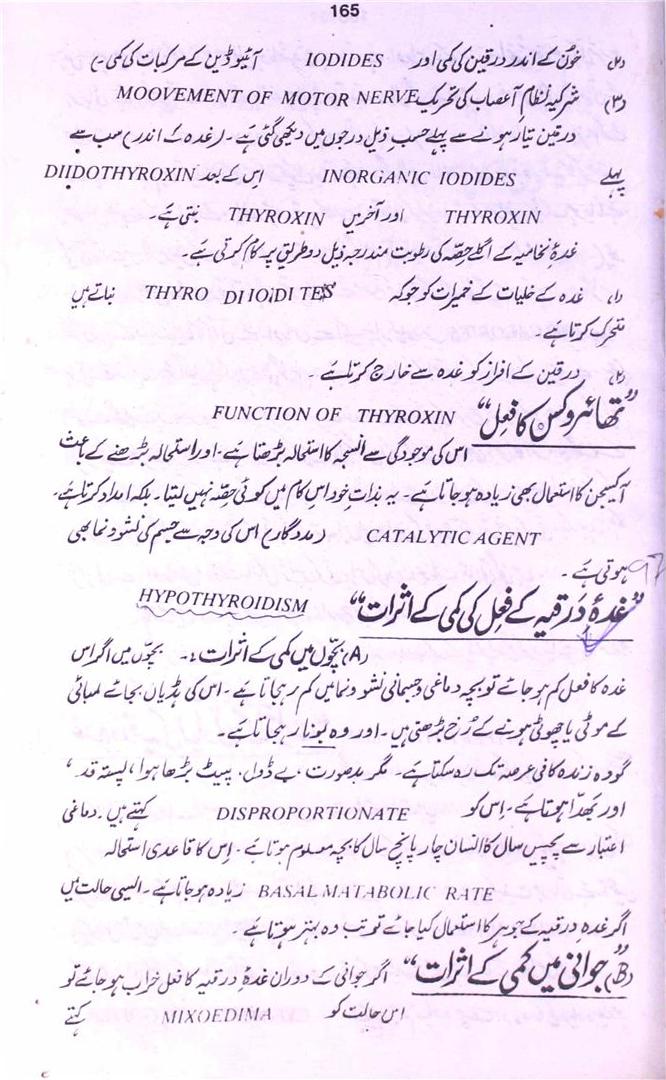 165
(۲) خون کے اندر درقین کی کمی اور IODIDES آئیوڈین کے مرکبات کی کمی۔
(۳) شرکیہ نظامِ اعصاب کی تحریک MOOVEMENT OF MOTOR NERVE
درقین تیار ہونے سے پہلے حسبِ ذیل درجوں میں دیکھی گئی ہے۔ (غدہ کے اندر) سب سے
پہلے INORGANIC IODIDES اس کے بعد DIIDOTHYROXIN
THYROXIN اور آخر میں THYROXIN بنتی ہے۔
غدۂ نخامیہ کے اگلے حصّہ کی رطوبت مندرجہ ذیل دو طریق پر کام کرتی ہے۔
(۱) غدہ کے خلیات کے خمیرات کو جو کہ THYRO DI IOiDI TES بناتے ہیں
متحرک کرتا ہے۔
(۲) درقین کے افراز کو غدہ سے خارج کرتا ہے۔
”تھائروکسن کا فعل“ FUNCTION OF THYROXIN
اس کی موجودگی سے انسجہ کا استحالہ بڑھتا ہے۔ اور استحالہ بڑھنے کے باعث
آکسیجن کا استعمال بھی زیادہ ہو جاتا ہے۔ یہ بذاتِ خود اس کام میں کوئی حصّہ نہیں لیتا۔ بلکہ امداد کرتا ہے۔
CATALYTIC AGENT (مددگار) اس کی وجہ سے جسم کی نشوونما بھی
ہوتی ہے۔
”غدۂ دَرقیہ کے فعل کی کمی کے اثرات“ HYPOTHYROIDISM
(A) بچّوں میں کمی کے اثرات :۔ بچوں میں اگر اس
غدہ کا فعل کم ہو جائے تو بچہ دماغی و جسمانی نشوونما میں کم رہجاتا ہے۔ اس کی ہڈیاں بجائے لمبائی
کے موٹی یا چھوٹی ہونے کے رُخ بڑھتی ہیں۔ اور وہ بونا رہجاتا ہے۔
گو وہ زندہ کافی عرصہ تک رہ سکتا ہے۔ مگر بدصورت، بے ڈول، پیٹ بڑھا ہوا، پستہ قد،
اور بھدّا ہوتا ہے۔ اس کو DISPROPORTIONATE کہتے ہیں۔ دماغی
اعتبار سے پچیس سال کا انسان چار پانچ سال کا بچہ معلوم ہوتا ہے۔ اس کا قاعدی استحالہ
BASAL MATABOLIC RATE زیادہ ہو جاتا ہے۔ ایسی حالت میں
اگر غدہ درقیہ کے جوہر کا استعمال کیا جائے تو تب وہ بہتر ہوتا ہے۔
(B) ”جوانی میں کمی کے اثرات“ اگر جوانی کے دوران غدۂ درقیہ کا فعل خراب ہو جائے تو
اس حالت کو MIXOEDIMA کہتے